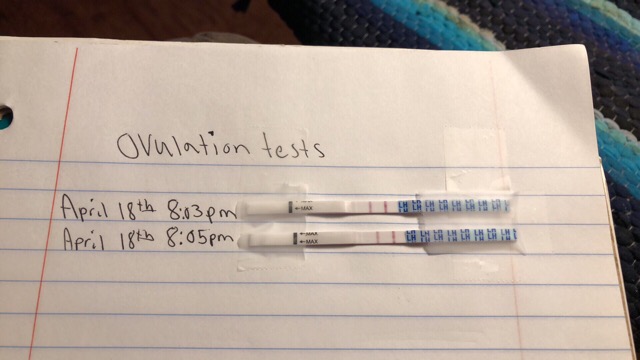 Ovulation tests
April 18th 8:03pm ←MAX LH LH LH LH LH LH LH
April 18th 8:05pm ←MAX ←MAX LH LH LH LH LH LH LH